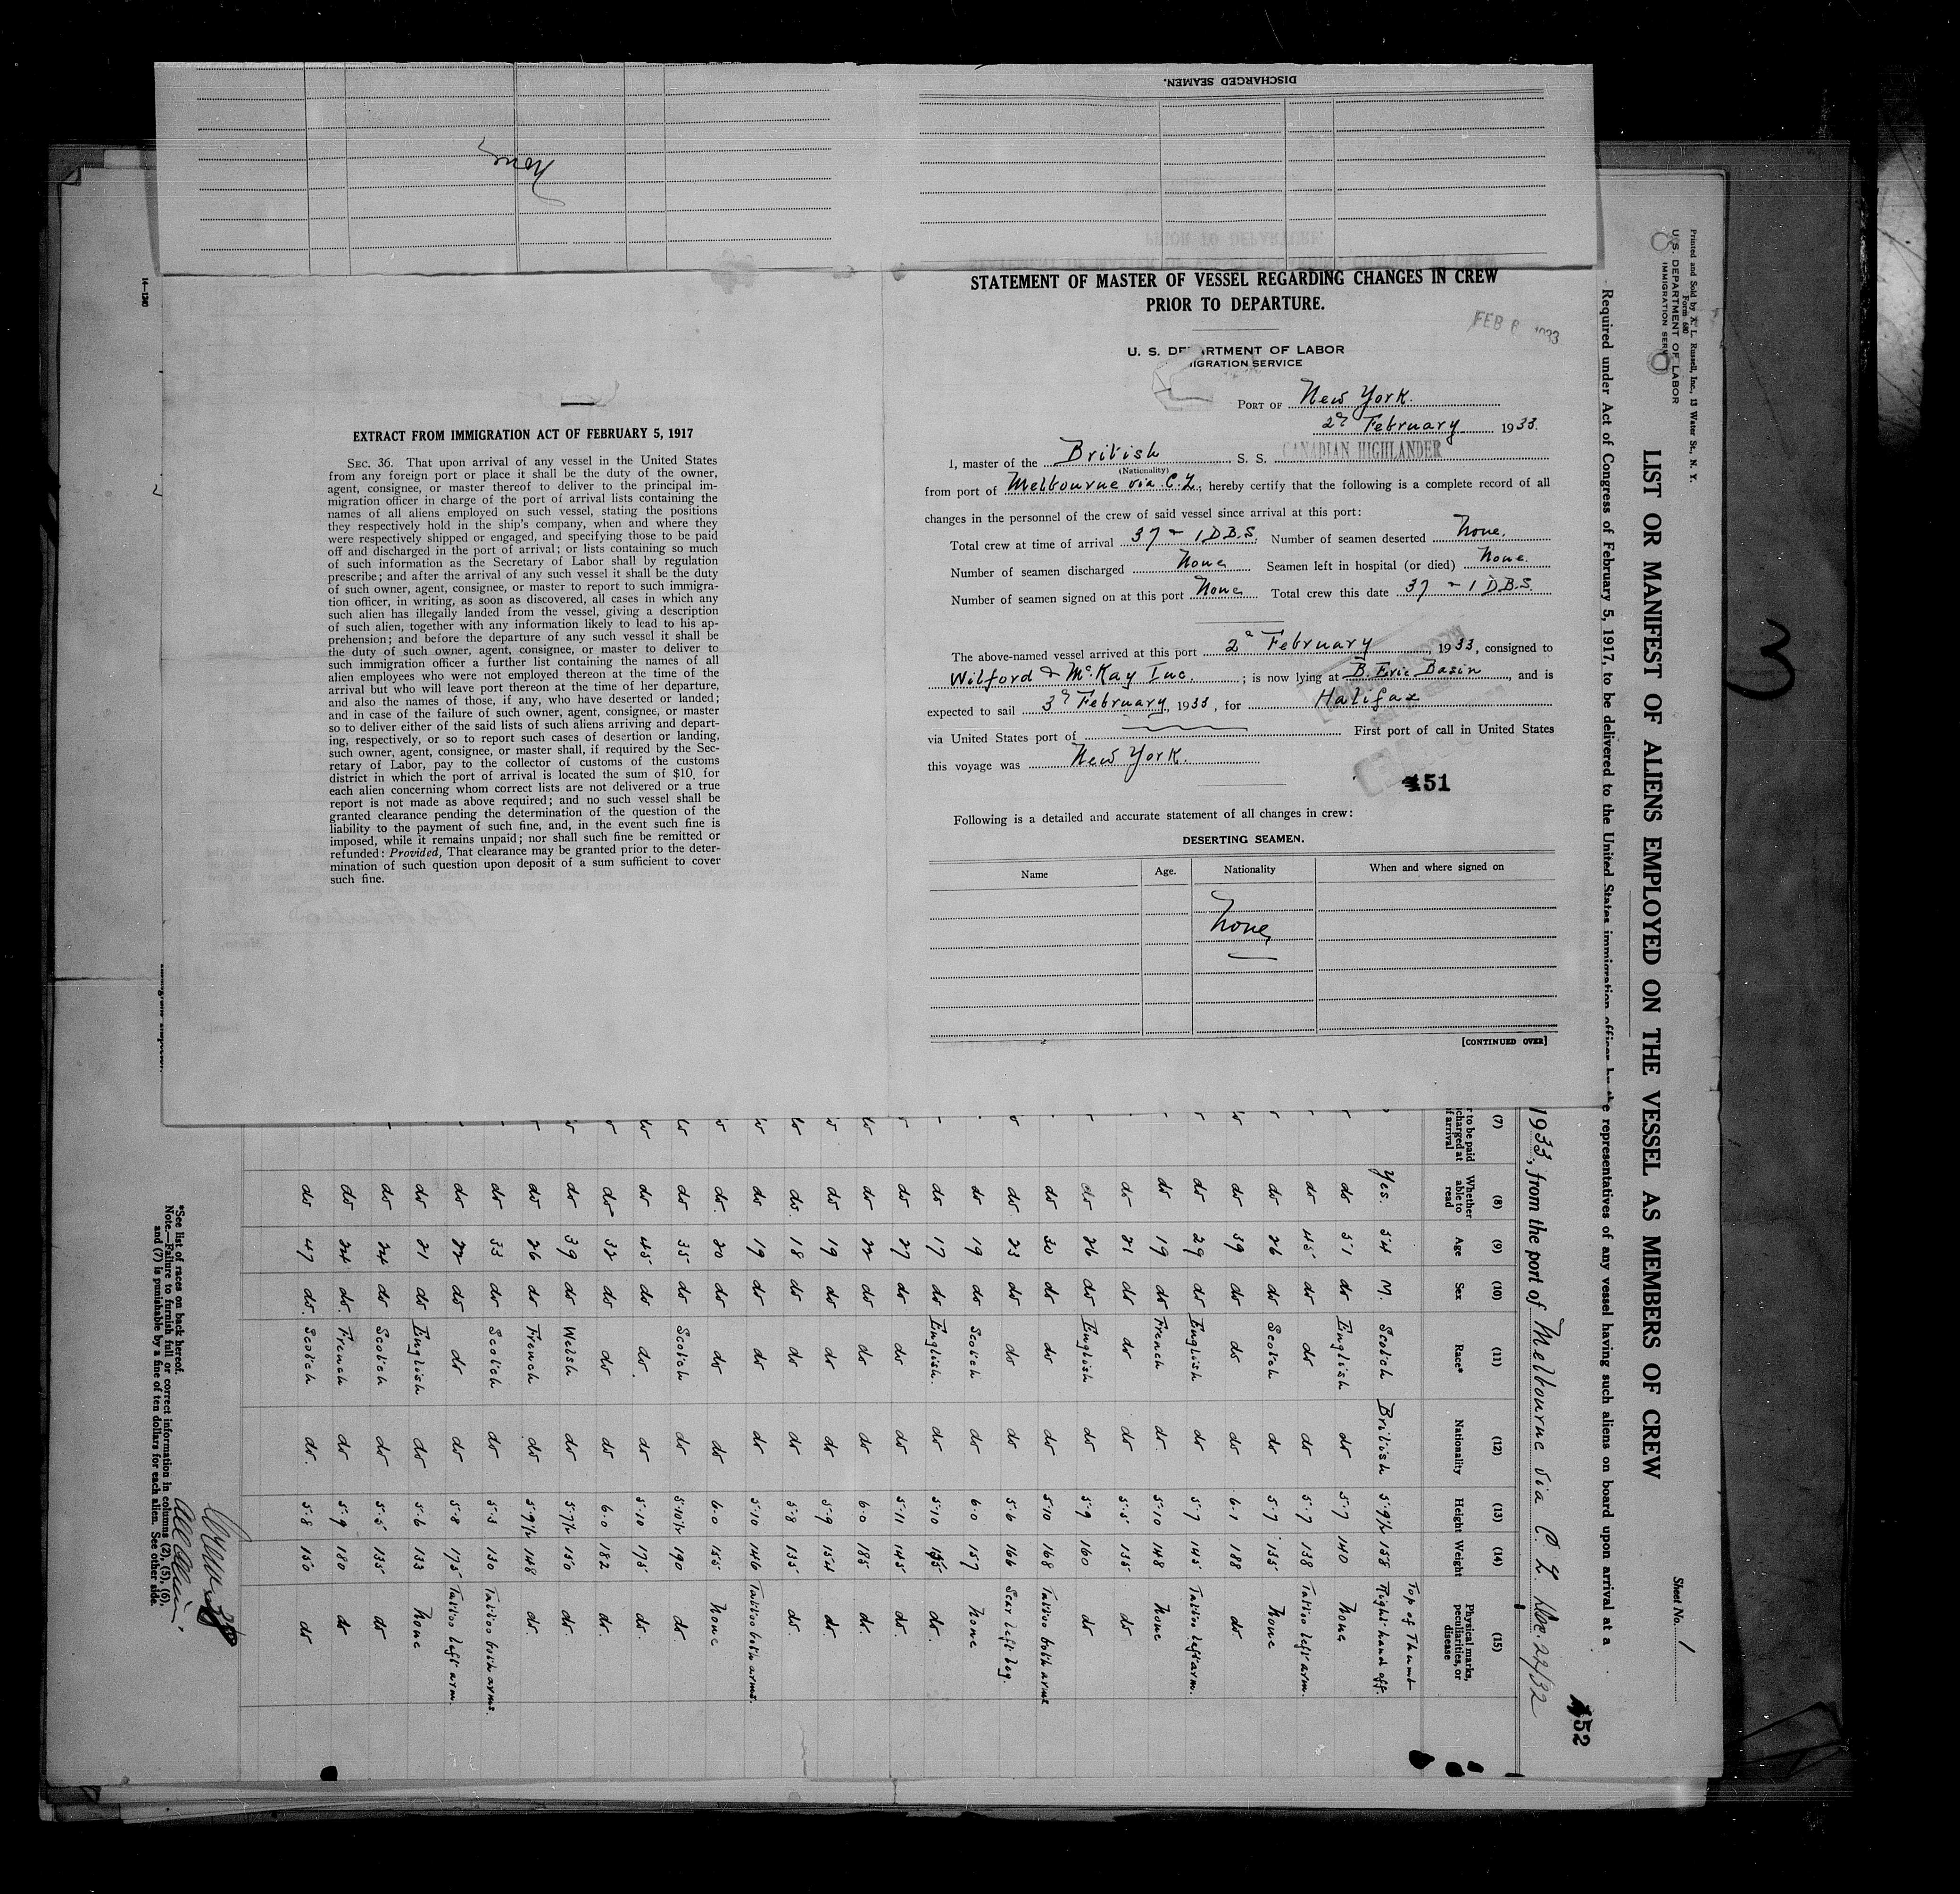 DISCHARGED SEAMEN.
None
STATEMENT OF MASTER OF VESSEL REGARDING CHANGES IN CREW
PRIOR TO DEPARTURE.
FEB 1933
U. S. DEPARTMENT OF LABOR
IGRATION SERVICE
PORT OF New York.
2d February 1933.
I, master of the British S. S. CANADIAN HIGHLANDER
(Nationality)
from port of Melbourne via C.Z., hereby certify that the following is a complete record of all
changes in the personnel of the crew of said vessel since arrival at this port:
Total crew at time of arrival 37 - 1 D.B.S. Number of seamen deserted None.
Number of seamen discharged None Seamen left in hospital (or died) None.
Number of seamen signed on at this port None Total crew this date 37 - 1 D.B.S.
The above-named vessel arrived at this port 2d February, 1933, consigned to
Wilford & McKay Inc. ; is now lying at B. Erie Basin, and is
expected to sail 3d February, 1933, for Halifax
via United States port of First port of call in United States
this voyage was New York.
151
Following is a detailed and accurate statement of all changes in crew:
DESERTING SEAMEN.
Name Age. Nationality When and where signed on
None
[CONTINUED OVER]
14—1240
EXTRACT FROM IMMIGRATION ACT OF FEBRUARY 5, 1917
SEC. 36. That upon arrival of any vessel in the United States
from any foreign port or place it shall be the duty of the owner,
agent, consignee, or master thereof to deliver to the principal im-
migration officer in charge of the port of arrival lists containing the
names of all aliens employed on such vessel, stating the positions
they respectively hold in the ship's company, when and where they
were respectively shipped or engaged, and specifying those to be paid
off and discharged in the port of arrival; or lists containing so much
of such information as the Secretary of Labor shall by regulation
prescribe; and after the arrival of any such vessel it shall be the duty
of such owner, agent, consignee, or master to report to such immigra-
tion officer, in writing, as soon as discovered, all cases in which any
such alien has illegally landed from the vessel, giving a description
of such alien, together with any information likely to lead to his ap-
prehension; and before the departure of any such vessel it shall be
the duty of such owner, agent, consignee, or master to deliver to
such immigration officer a further list containing the names of all
alien employees who were not employed thereon at the time of the
arrival but who will leave port thereon at the time of her departure,
and also the names of those, if any, who have deserted or landed;
and in case of the failure of such owner, agent, consignee, or master
so to deliver either of the said lists of such aliens arriving and depart-
ing, respectively, or so to report such cases of desertion or landing,
such owner, agent, consignee, or master shall, if required by the Sec-
retary of Labor, pay to the collector of customs of the customs
district in which the port of arrival is located the sum of $10 for
each alien concerning whom correct lists are not delivered or a true
report is not made as above required; and no such vessel shall be
granted clearance pending the determination of the question of the
liability to the payment of such fine, and, in the event such fine is
imposed, while it remains unpaid; nor shall such fine be remitted or
refunded: Provided, That clearance may be granted prior to the deter-
mination of such question upon deposit of a sum sufficient to cover
such fine.
3
Printed and Sold by X. L. Russell, Inc., 13 Water St., N. Y.
Form 680
U. S. DEPARTMENT OF LABOR
IMMIGRATION SERV
Sheet No. 1
LIST OR MANIFEST OF ALIENS EMPLOYED ON THE VESSEL AS MEMBERS OF CREW
Required under Act of Congress of February 5, 1917, to be delivered to the United States immigration officer by the representatives of any vessel having such aliens on board upon arrival at a
152
1933, from the port of Melbourne via C. Z. Dec. 22/32
(7) (8) (9) (10) (11) (12) (13) (14) (15)
Whether able to read Age Sex Race* Nationality Height Weight Physical marks, peculiarities, or disease
Yes. 54 M. Scotch British 5-9½ 158 Top of Thumb Right hand off.
do 51 do English do 5-7 140 None
do 45 do do do 5-7 138 Tattoo left arm.
do 26 do Scotch do 5-7 135 None
do 39 do do do 6-1 188 do
do 29 do English do 5-7 145 Tattoo left arm.
do 19 do French do. 5-10 148 None
do 21 do do do 5-5 135 do
do 26 do English do 5-9 160 do
do 30 do do do 5-10 168 Tattoo both arms
do. 23 do do do 5-6 166 Scar left leg.
do 19 do Scotch do 6-0 157 None
do 17 do English. do 5-10 do.
do 27 do do do 5-11 145 do.
do 22 do do do 6-0 185 do.
do 19 do do do 5-9 154 do.
do. 18 do do do 5-8 135 do.
do 19 do do do 5-10 146 Tattoo both arms.
do. 20 do do do 6-0 155 None
do 35 do Scotch do 5-10½ 190 do.
do 45 do do. do 5-10 175 do.
do 32 do do do 6-0 182 do.
do 39 do Welsh do 5-7½ 150 do.
do 26 do French do 5-9½ 148 do.
do 33 do Scotch do 5-3 130 Tattoo both arms.
do 22 do do do 5-8 175 Tattoo left arm.
do 21 do English do 5-6 133 None
do 24 do Scotch do 5-5 135 do
do 24 do. French do 5-9 180 do
do 47 do. Scotch do. 5-8 150 do
*See list of races on back hereof.
Note.—Failure to furnish full or correct information in columns (2), (5), (6),
and (7) is punishable by a fine of ten dollars for each alien. See other side.